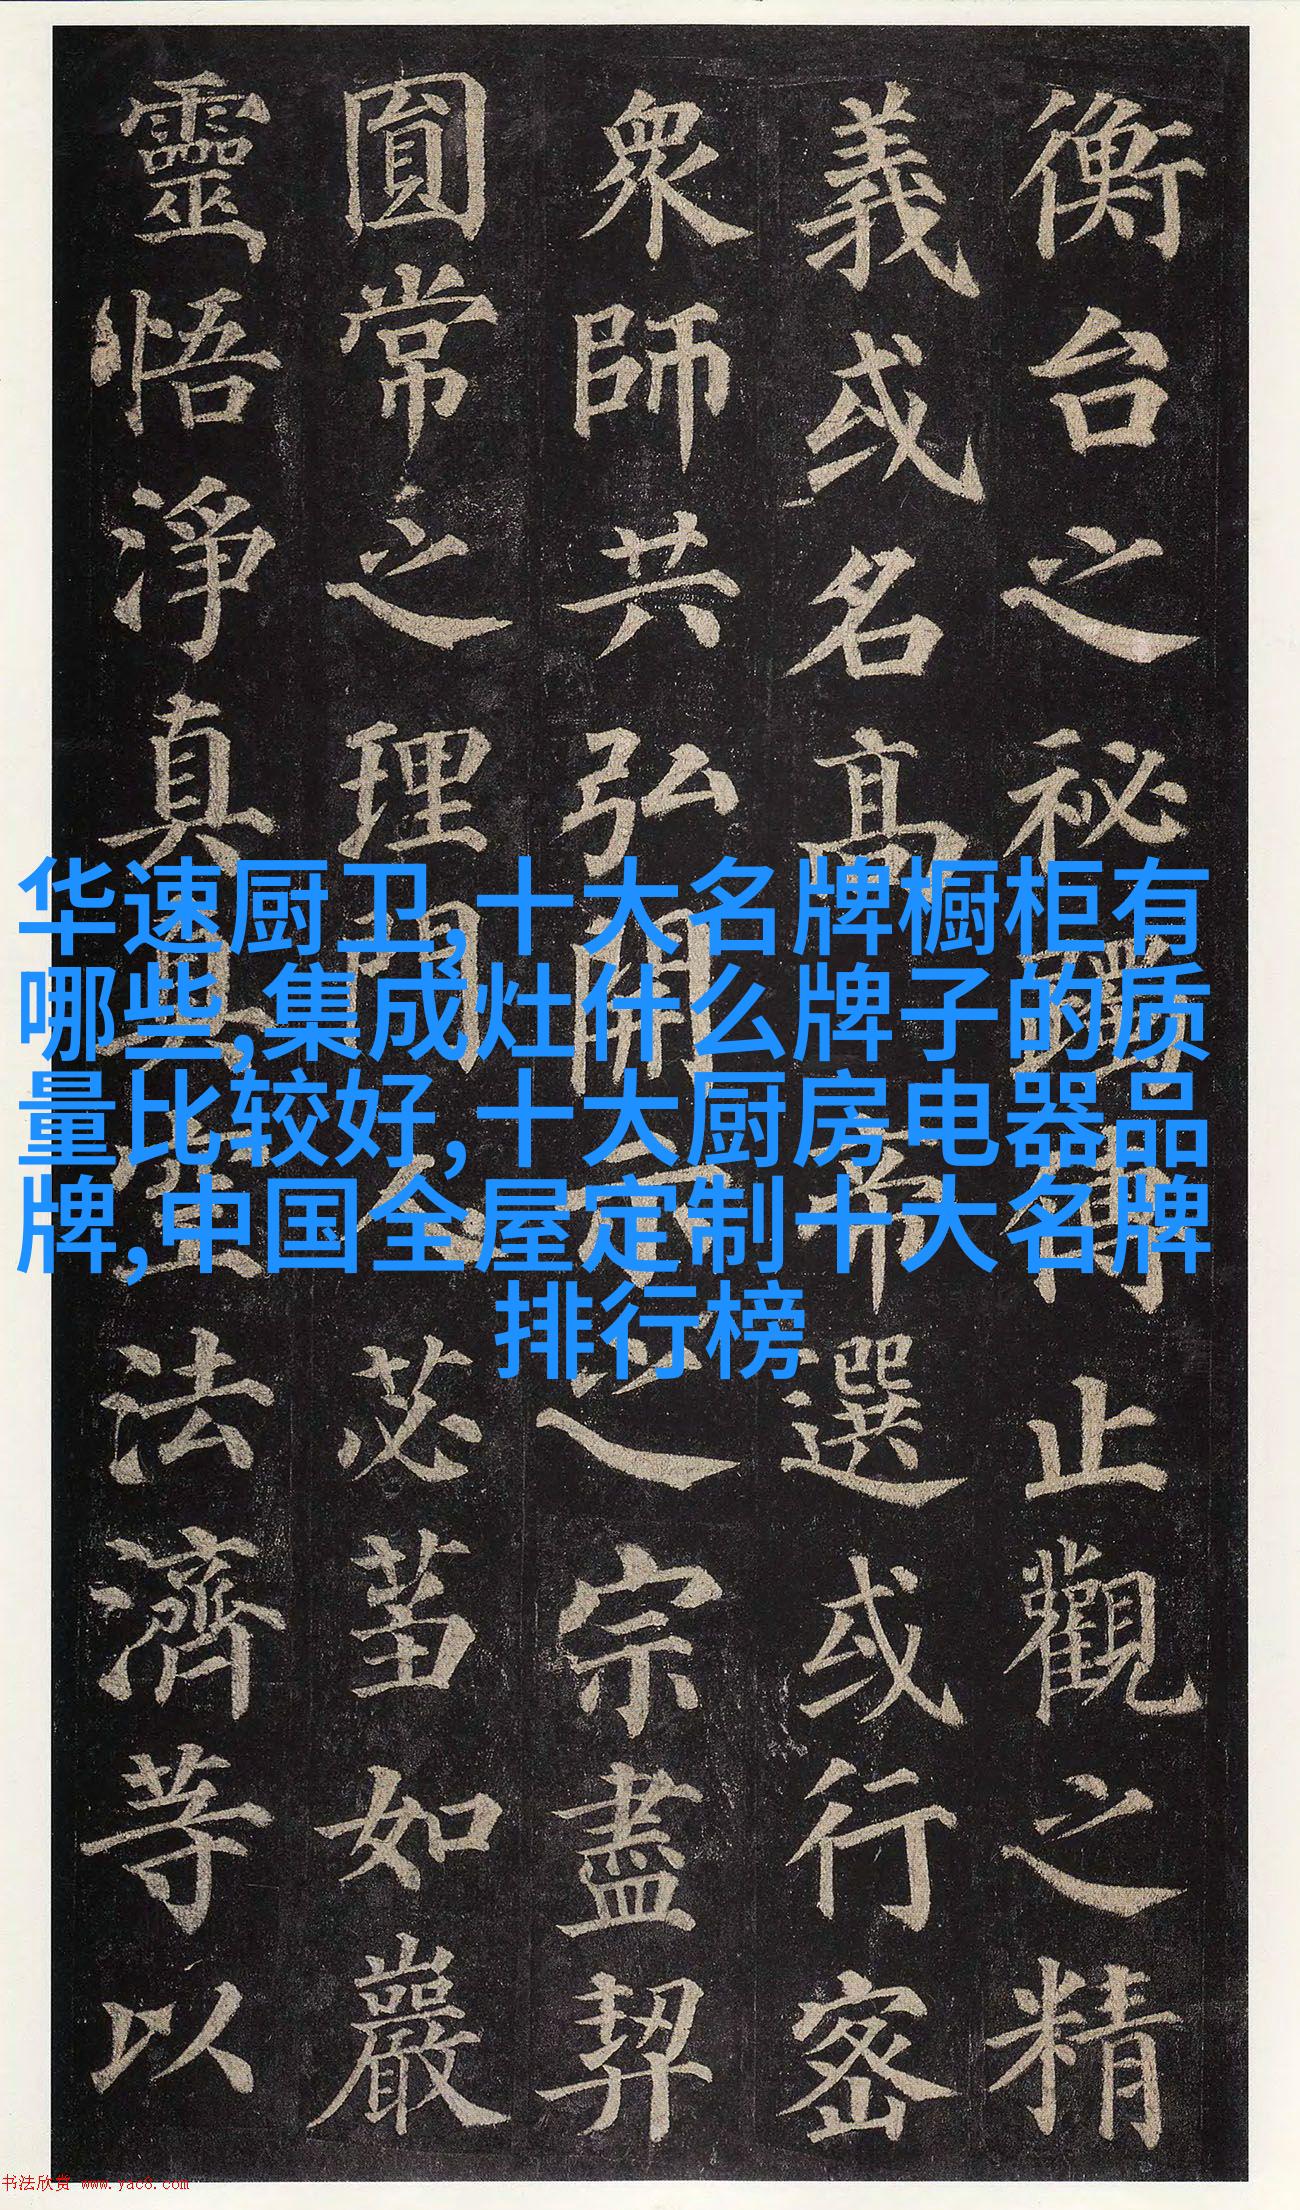 衡台之秘躅傳止觀之精
義或名高帝選或行密
眾師共弘開示之宗盡契
圓常之理門人苾芻如巖
靈悟淨真真空法濟等以
华速厨卫,十大名牌橱柜有
哪些,集成灶什么牌子的质
量比较好,十大厨房电器品
牌,中国全屋定制十大名牌
排行榜
书法欣赏 www.yac8.com